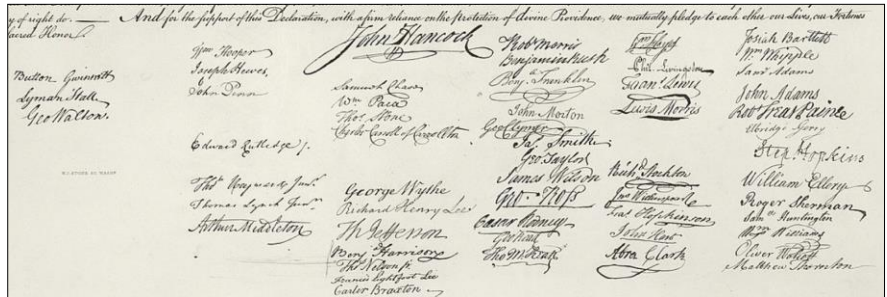 y of right do. — And for the support of this Declaration, with a firm reliance on the protection of divine Providence, we mutually pledge to each other our Lives, our Fortunes
acred Honor.
Button Gwinnett
Lyman Hall
Geo Walton.
Wm Hooper
Joseph Hewes,
John Penn
Edward Rutledge /.
Thos Heyward Junr.
Thomas Lynch Junr.
Arthur Middleton
John Hancock
Samuel Chase
Wm Paca
Thos Stone
Charles Carroll of Carrollton
George Wythe
Richard Henry Lee
Th Jefferson
Benj Harrison
Thos Nelson jr
Francis Lightfoot Lee
Carter Braxton
Robt Morris
Benjamin Rush
Benj Franklin
John Morton
Geo Clymer
Jas Smith
Geo Taylor
James Wilson
Geo. Ross
Caesar Rodney
Geo Read
Tho M:Kean
Wm Floyd
Phil. Livingston
Frans Lewis
Lewis Morris
Richd Stockton
Jno Witherspoon
Fras Hopkinson
John Hart
Abra Clark
Josiah Bartlett
Wm Whipple
Saml Adams
John Adams
Robt Treat Paine
Elbridge Gerry
Step Hopkins
William Ellery
Roger Sherman
Saml Huntington
Wm Williams
Oliver Wolcott
Matthew Thornton